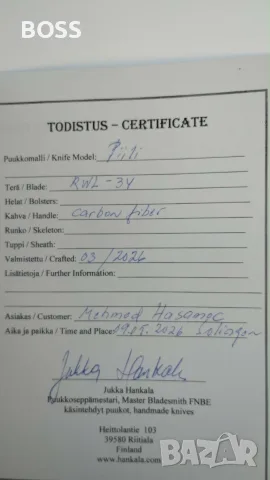 BOSS
TODISTUS – CERTIFICATE
Puukkomalli / Knife Model: Piili
Terä / Blade: RWL-34
Helat / Bolsters:
Kahva / Handle: Carbon fiber
Runko / Skeleton:
Tuppi / Sheath:
Valmistettu / Crafted: 03/2026
Lisätietoja / Further Information:
Asiakas / Customer: Mehmed
Aika ja paikka / Time and Place: 2026 Solingen
Jukka Hankala
Jukka Hankala
Puukkoseppämestari, Master Bladesmith FNBE
käsinmehdyt puukot, handmade knives
Heittolantie 103
39580 Riitiala
Finland
www.hankala.com
bazar
.bg